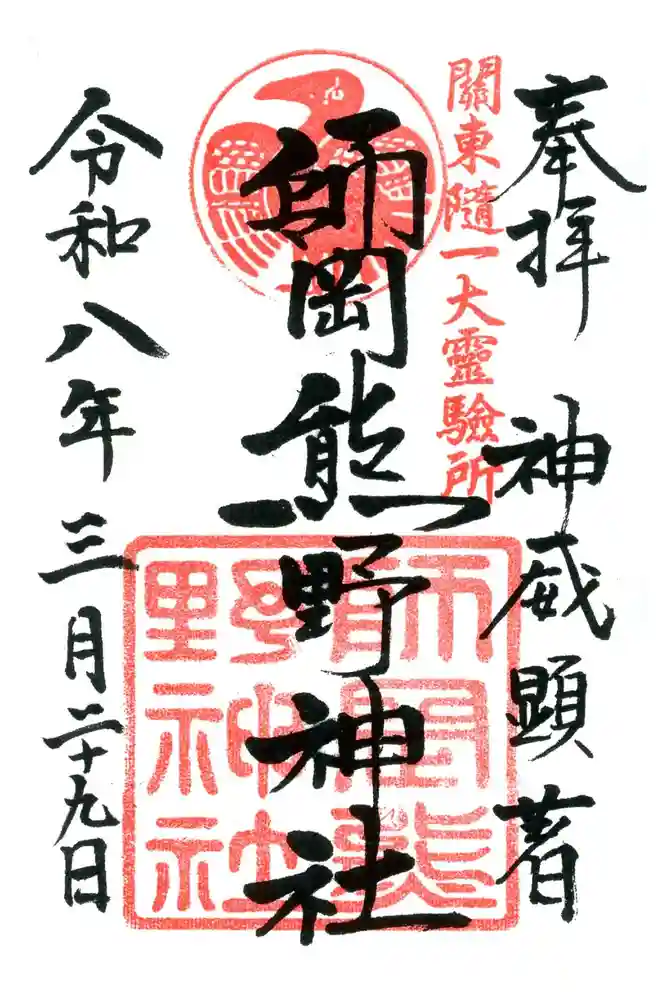 奉拝 神威顕著
關東隨一大靈驗所
師岡熊野神社
師岡熊野神社
令和八年三月二十九日